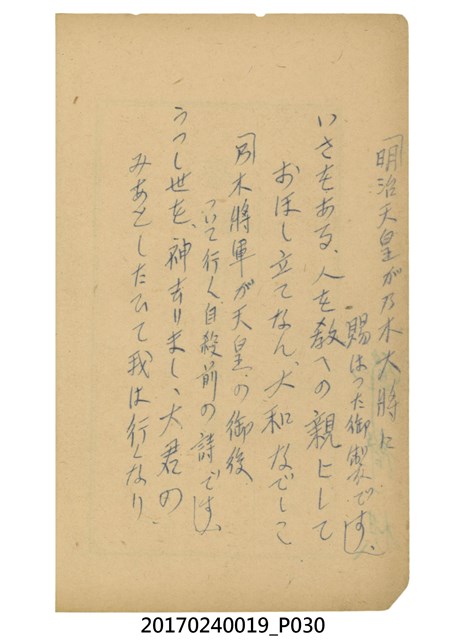 「明治天皇が乃木大將に
賜はつた御製です」
いさをある、人を教への親として
おほし立てなん、大和なでしこ
「乃木將軍が天皇の御後
ついて行く自殺前の詩です」
うつし世を、神去りまし、大君の
みあとしたひて我は行くなり
20170240019_P030